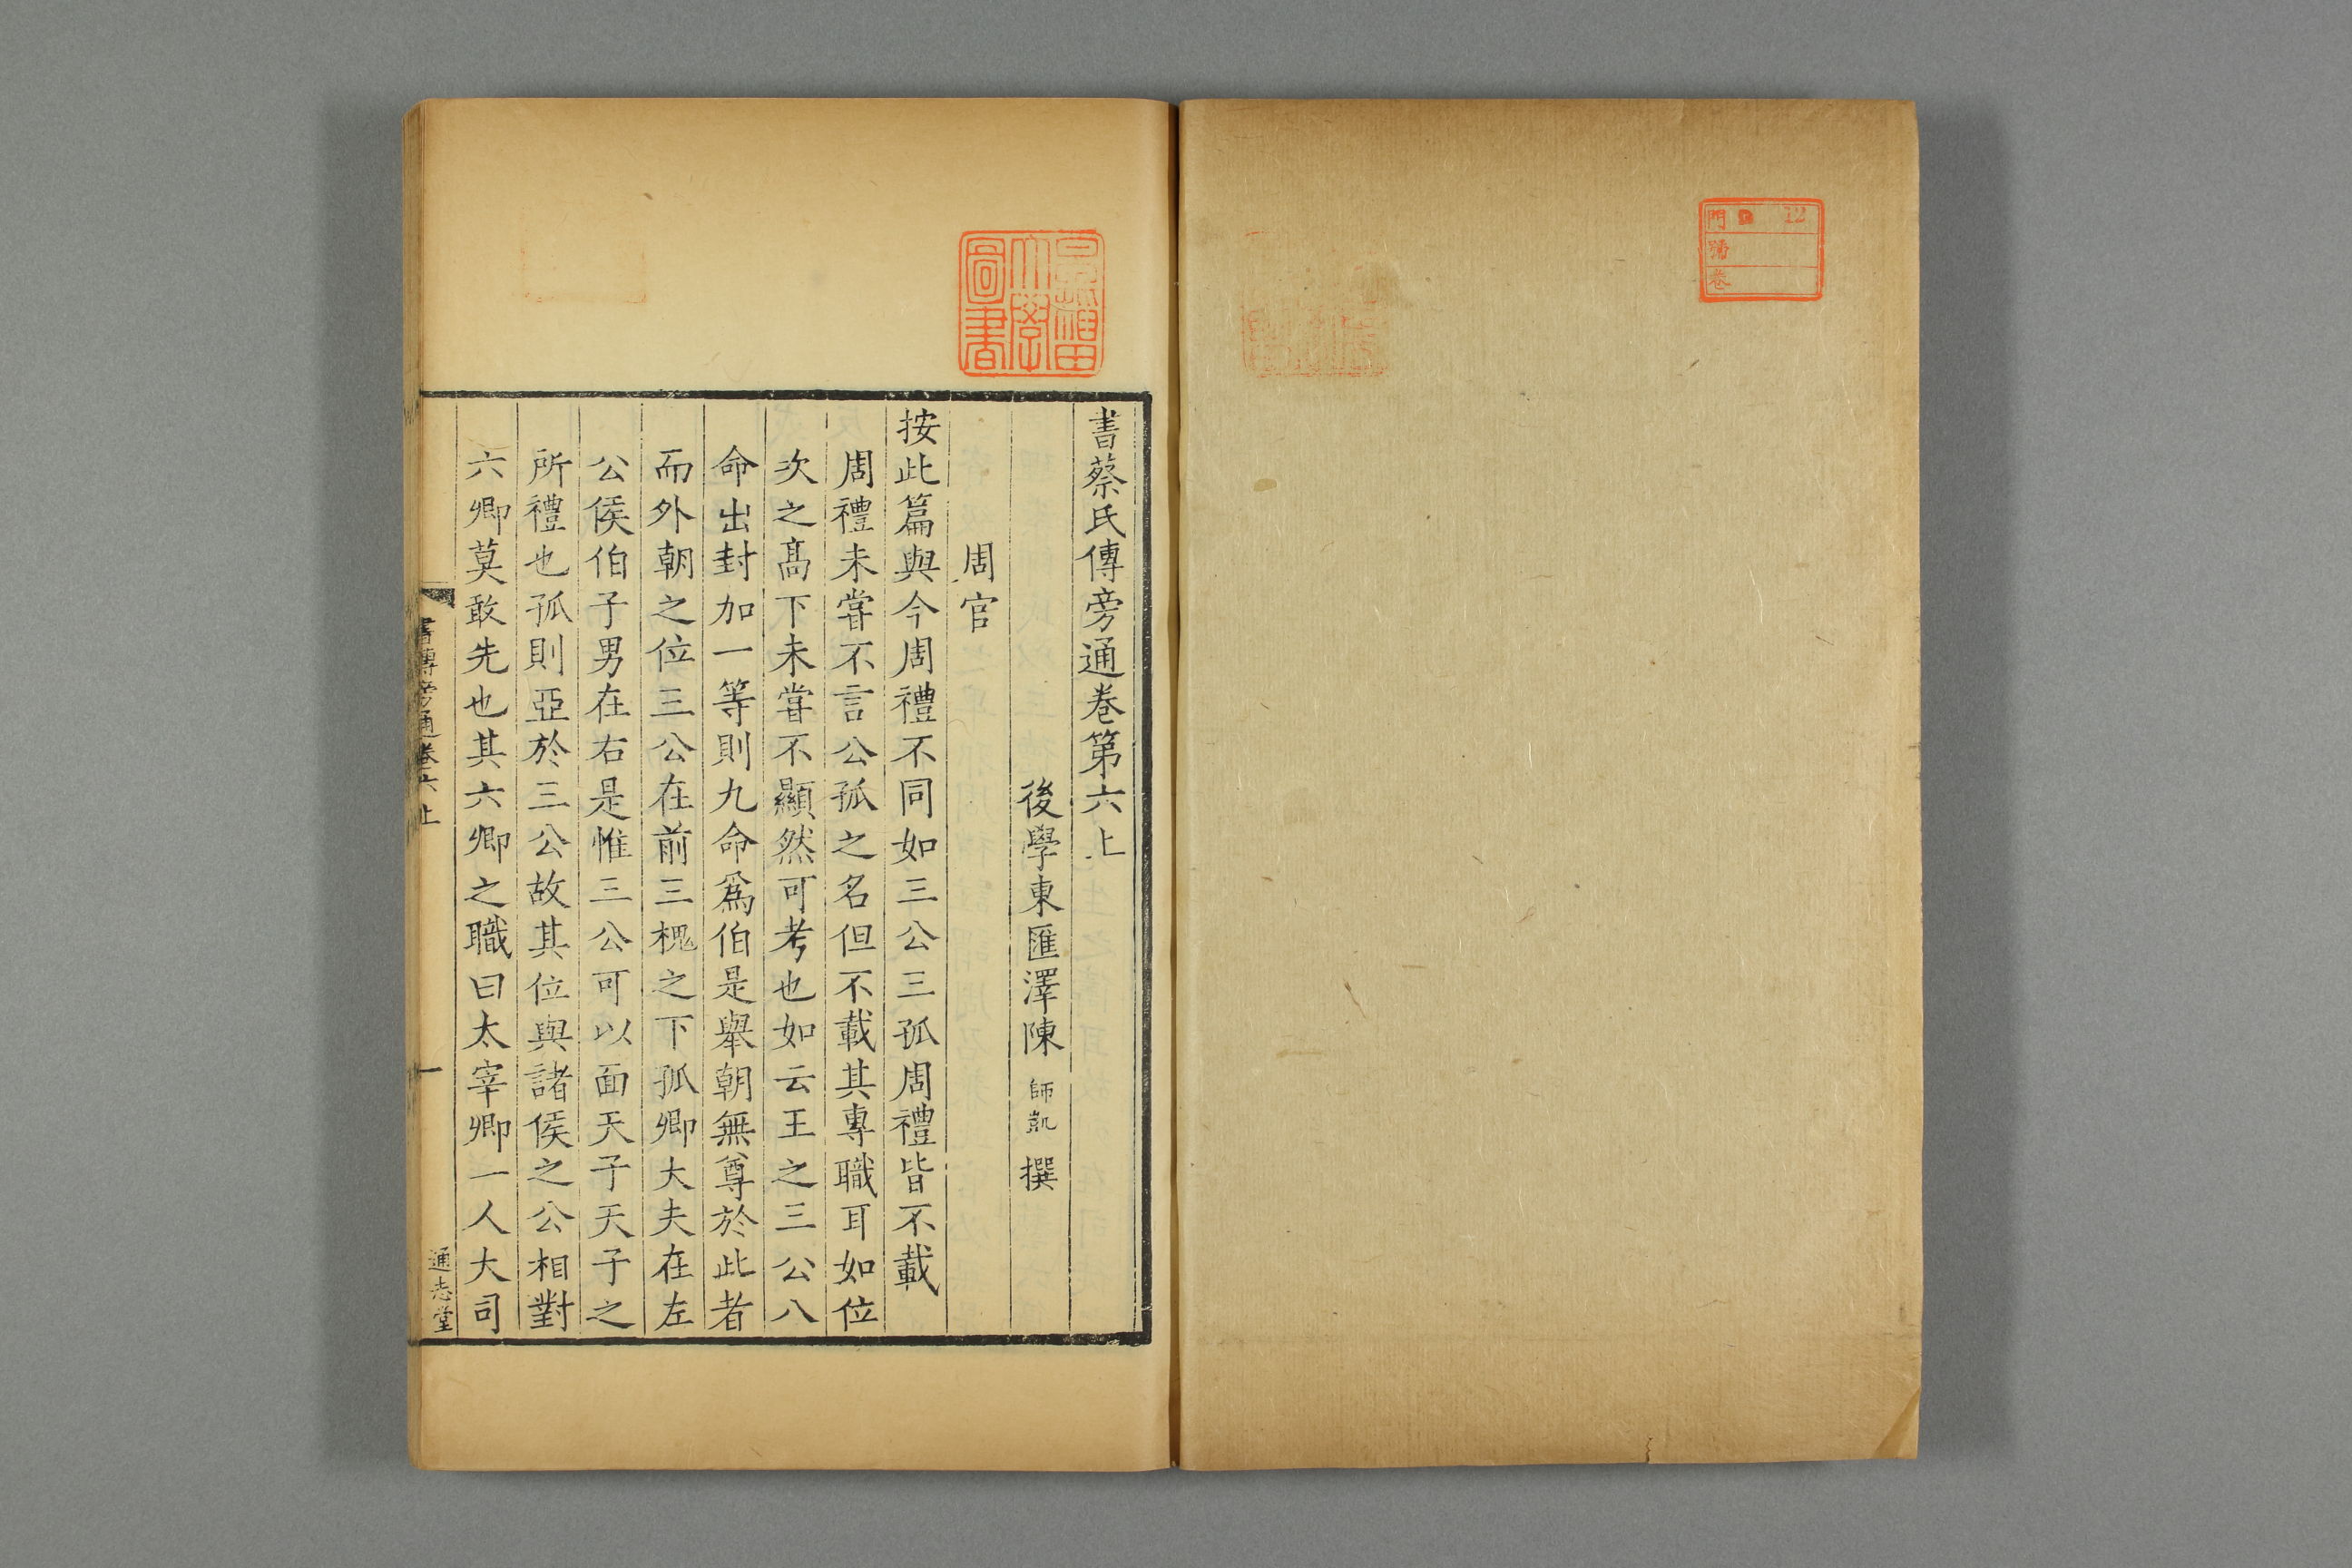 門 12
號
卷
早稻田大學圖書
書蔡氏傳旁通卷第六上
後學東匯澤陳師凱撰
周官
按此篇與今周禮不同如三公三孤周禮皆不載
周禮未嘗不言公孤之名但不載其專職耳如位
次之高下未嘗不顯然可考也如云王之三公八
命出封加一等則九命爲伯是舉朝無尊於此者
而外朝之位三公在前三槐之下孤卿大夫在左
公侯伯子男在右是惟三公可以面天子天子之
所禮也孤則亞於三公故其位與諸侯之公相對
六卿莫敢先也其六卿之職曰太宰卿一人大司
書傳旁通卷六上
一
通志堂